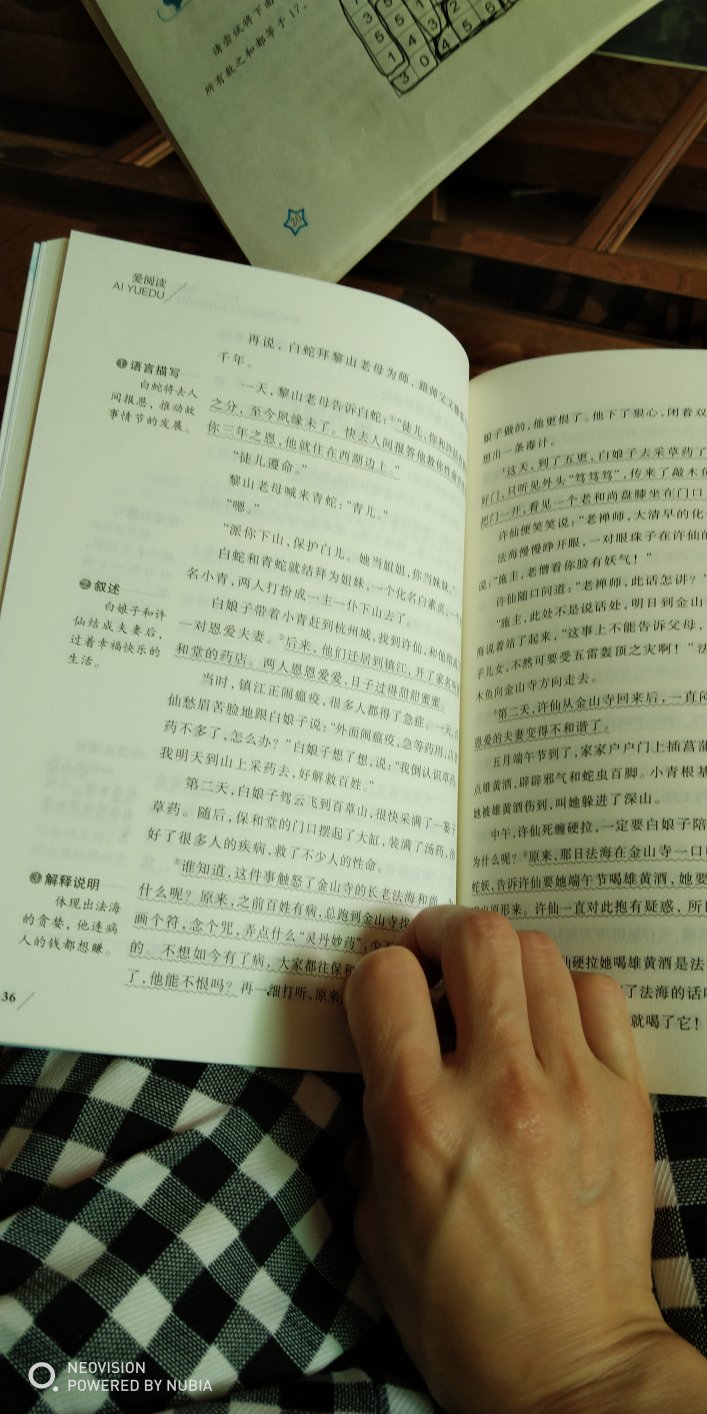 请尝试将下面
所有数之和都等于17。
20
爱阅读
AI YUEDU
再说，白蛇拜黎山老母为师，跟师父
千年。
❶语言描写
白蛇将去人
间报恩，推动故
事情节的发展。
一天，黎山老母告诉白蛇：①“徒儿，你和许仙
之分，至今夙缘未了。快去人间报答他救你性命
你三年之恩，他就住在西湖边上。”
“徒儿遵命。”
黎山老母喊来青蛇：“青儿。”
“嗯。”
“派你下山，保护白儿。她当姐姐，你当妹妹。”
白蛇和青蛇就结拜为姐妹，一个化名白素贞，一个
名小青，两人打扮成一主一仆下山去了。
❷叙述
白娘子和许
仙结成夫妻后，
过着幸福快乐的
生活。
白娘子带着小青赶到杭州城，找到许仙，和他结成
一对恩爱夫妻。②后来，他们迁居到镇江，开了家名叫
和堂的药店。两人恩恩爱爱，日子过得甜甜蜜蜜。
当时，镇江正闹瘟疫，很多人都得了急症。一天，
仙愁眉苦脸地跟白娘子说：“外面闹瘟疫，急等药用，店里
药不多了，怎么办？”白娘子想了想，说：“我倒认识草药，
我明天到山上采药去，好解救百姓。”
第二天，白娘子驾云飞到百草山，很快采满了一篓子
草药。随后，保和堂的门口摆起了大缸，装满了汤药，治
好了很多人的疾病，救了不少人的性命。
❸解释说明
体现出法海
的贪婪，他连病
人的钱都想赚。
③谁知道，这件事触怒了金山寺的长老法海和尚。为
什么呢？原来，之前百姓有病，总跑到金山寺找
画个符，念个咒，弄点什么“灵丹妙药”，少不
的。不想如今有了病，大家都往保和
了，他能不恨吗？再一细打听，原来
36
娘子做的，他更恨了。他下了狠心，闭着双
想出一条毒计。
这天，到了五更，白娘子去采草药了
好门，只听见外头“笃笃笃”，传来了敲木鱼
把门一开，看见一个老和尚盘膝坐在门口
许仙便笑笑说：“老禅师，大清早的化
法海慢慢睁开眼，一对眼珠子在许仙的
说：“施主，老僧看你脸有妖气！”
许仙随口问道：“老禅师，此话怎讲？”
“施主，此处不是说话处，明日到金山
海说着站了起来，“这事上不能告诉父母，
子儿女，不然可要受五雷轰顶之灾啊！”法
木鱼向金山寺方向走去。
第二天，许仙从金山寺回来后，一直闷
恩爱的夫妻变得不和谐了。
五月端午节到了，家家户户门上插菖蒲
点雄黄酒，辟辟邪气和蛇虫百脚。小青根基
她被雄黄酒伤到，叫她躲进了深山。
中午，许仙死缠硬拉，一定要白娘子陪
为什么呢？原来，那日法海在金山寺一口
蛇妖，告诉许仙要她端午节喝雄黄酒，她要
出原形来。许仙一直对此抱有疑惑，所
仙硬拉她喝雄黄酒是法
了法海的话
就喝了它！
NEOVISION
POWERED BY NUBIA